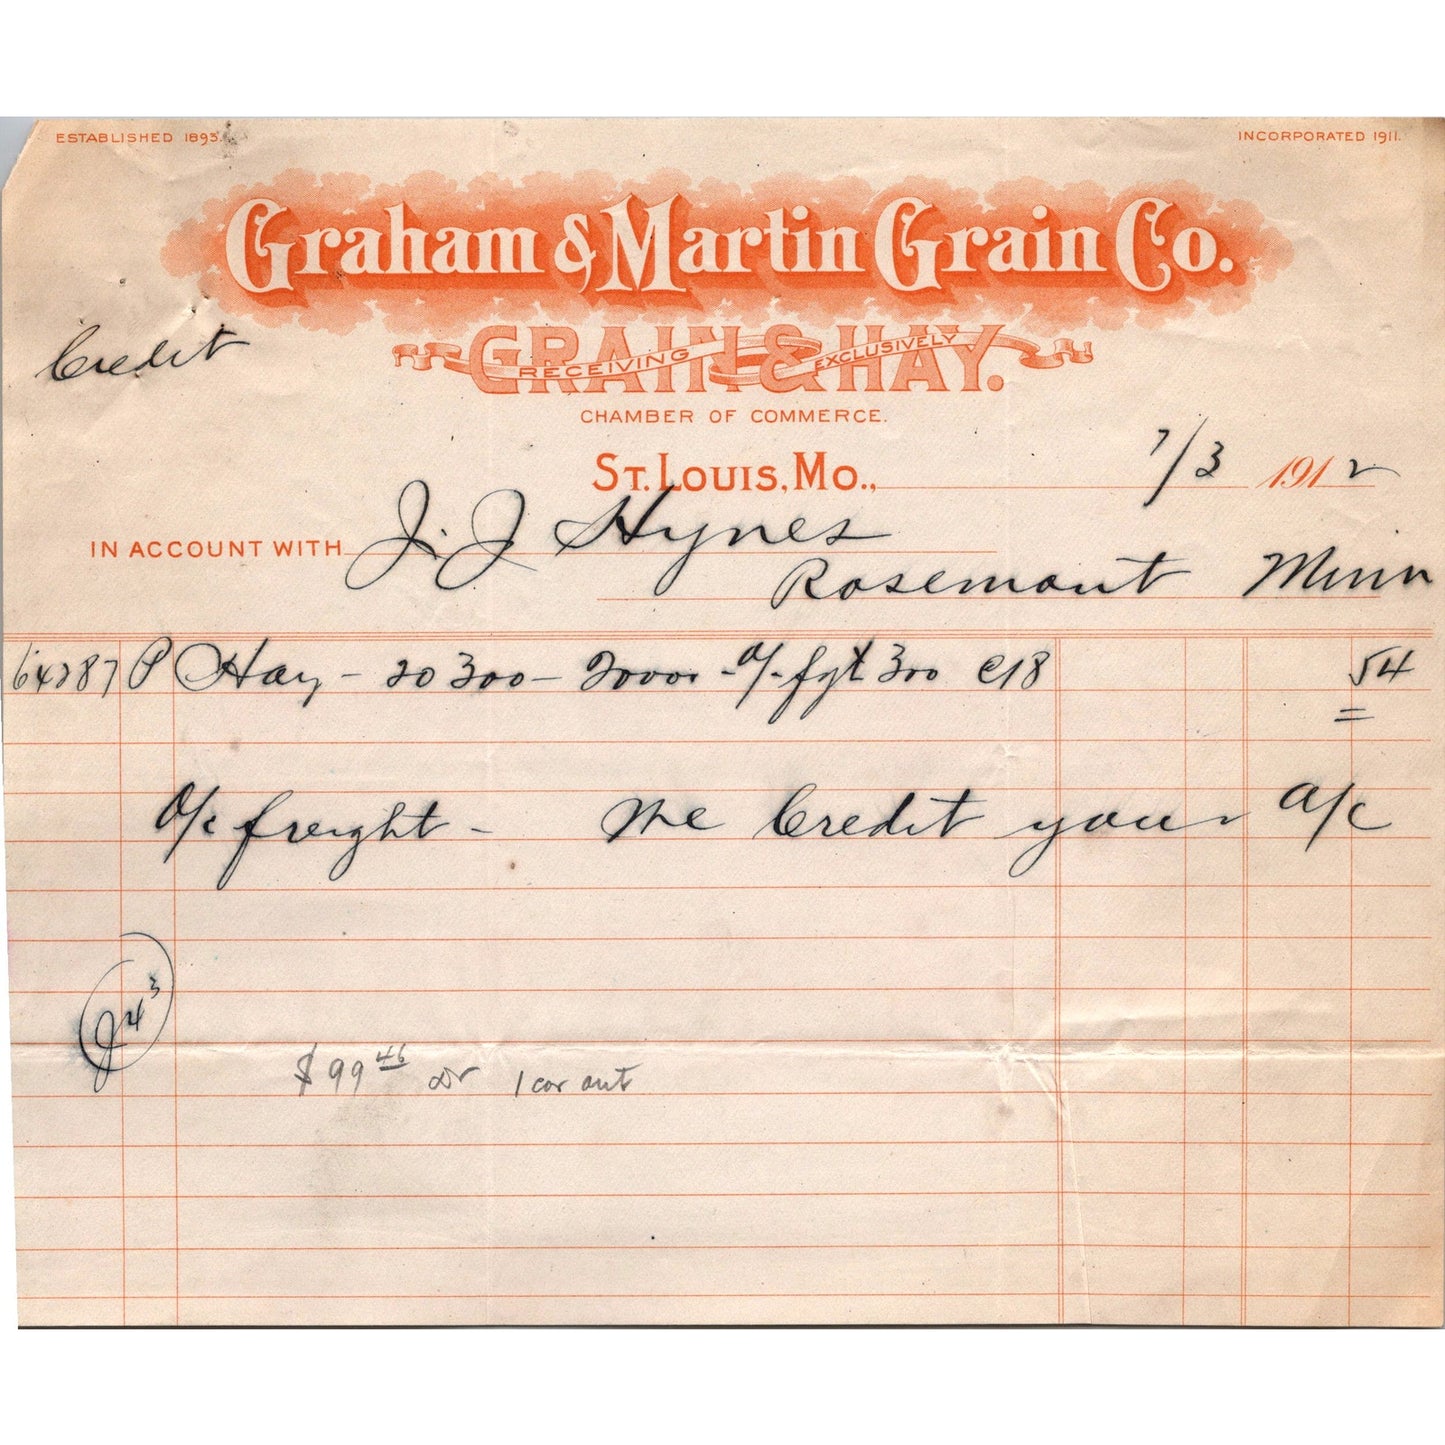 ESTABLISHED 1893.
INCORPORATED 1911.
Graham & Martin Grain Co.
GRAIN & HAY.
RECEIVING EXCLUSIVELY
CHAMBER OF COMMERCE.
Credit
ST. LOUIS, MO., 7/3 1912
IN ACCOUNT WITH J. J Hynes
Rosemount Minn
64287 P Hay - 20 300 - 20000 - o/c fgt 300 @18 54
a/c freight - We Credit your a/c
$99 46 Dr 1 car out